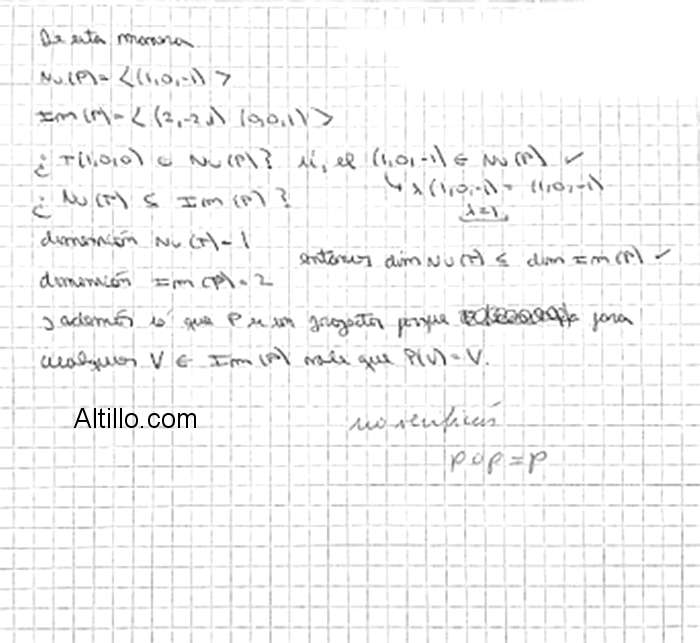 De esta manera
Nu(P) = <(1,0,-1)>
Im(P) = <(2,-2,1) (0,0,1)>
¿ T(1,0,0) ∈ Nu(P)? sí, el (1,0,-1) ∈ Nu(P) ✓
↳ λ(1,0,-1) = (1,0,-1)
λ=1
¿ Nu(T) ⊆ Im(P)?
dimensión Nu(T) = 1
entonces dim Nu(T) ≤ dim Im(P) ✓
dimensión Im(P) = 2
y además sé que P es un proyector porque para
cualquier V ∈ Im(P) vale que P(V) = V.
Altillo.com
no verificás
pop = p